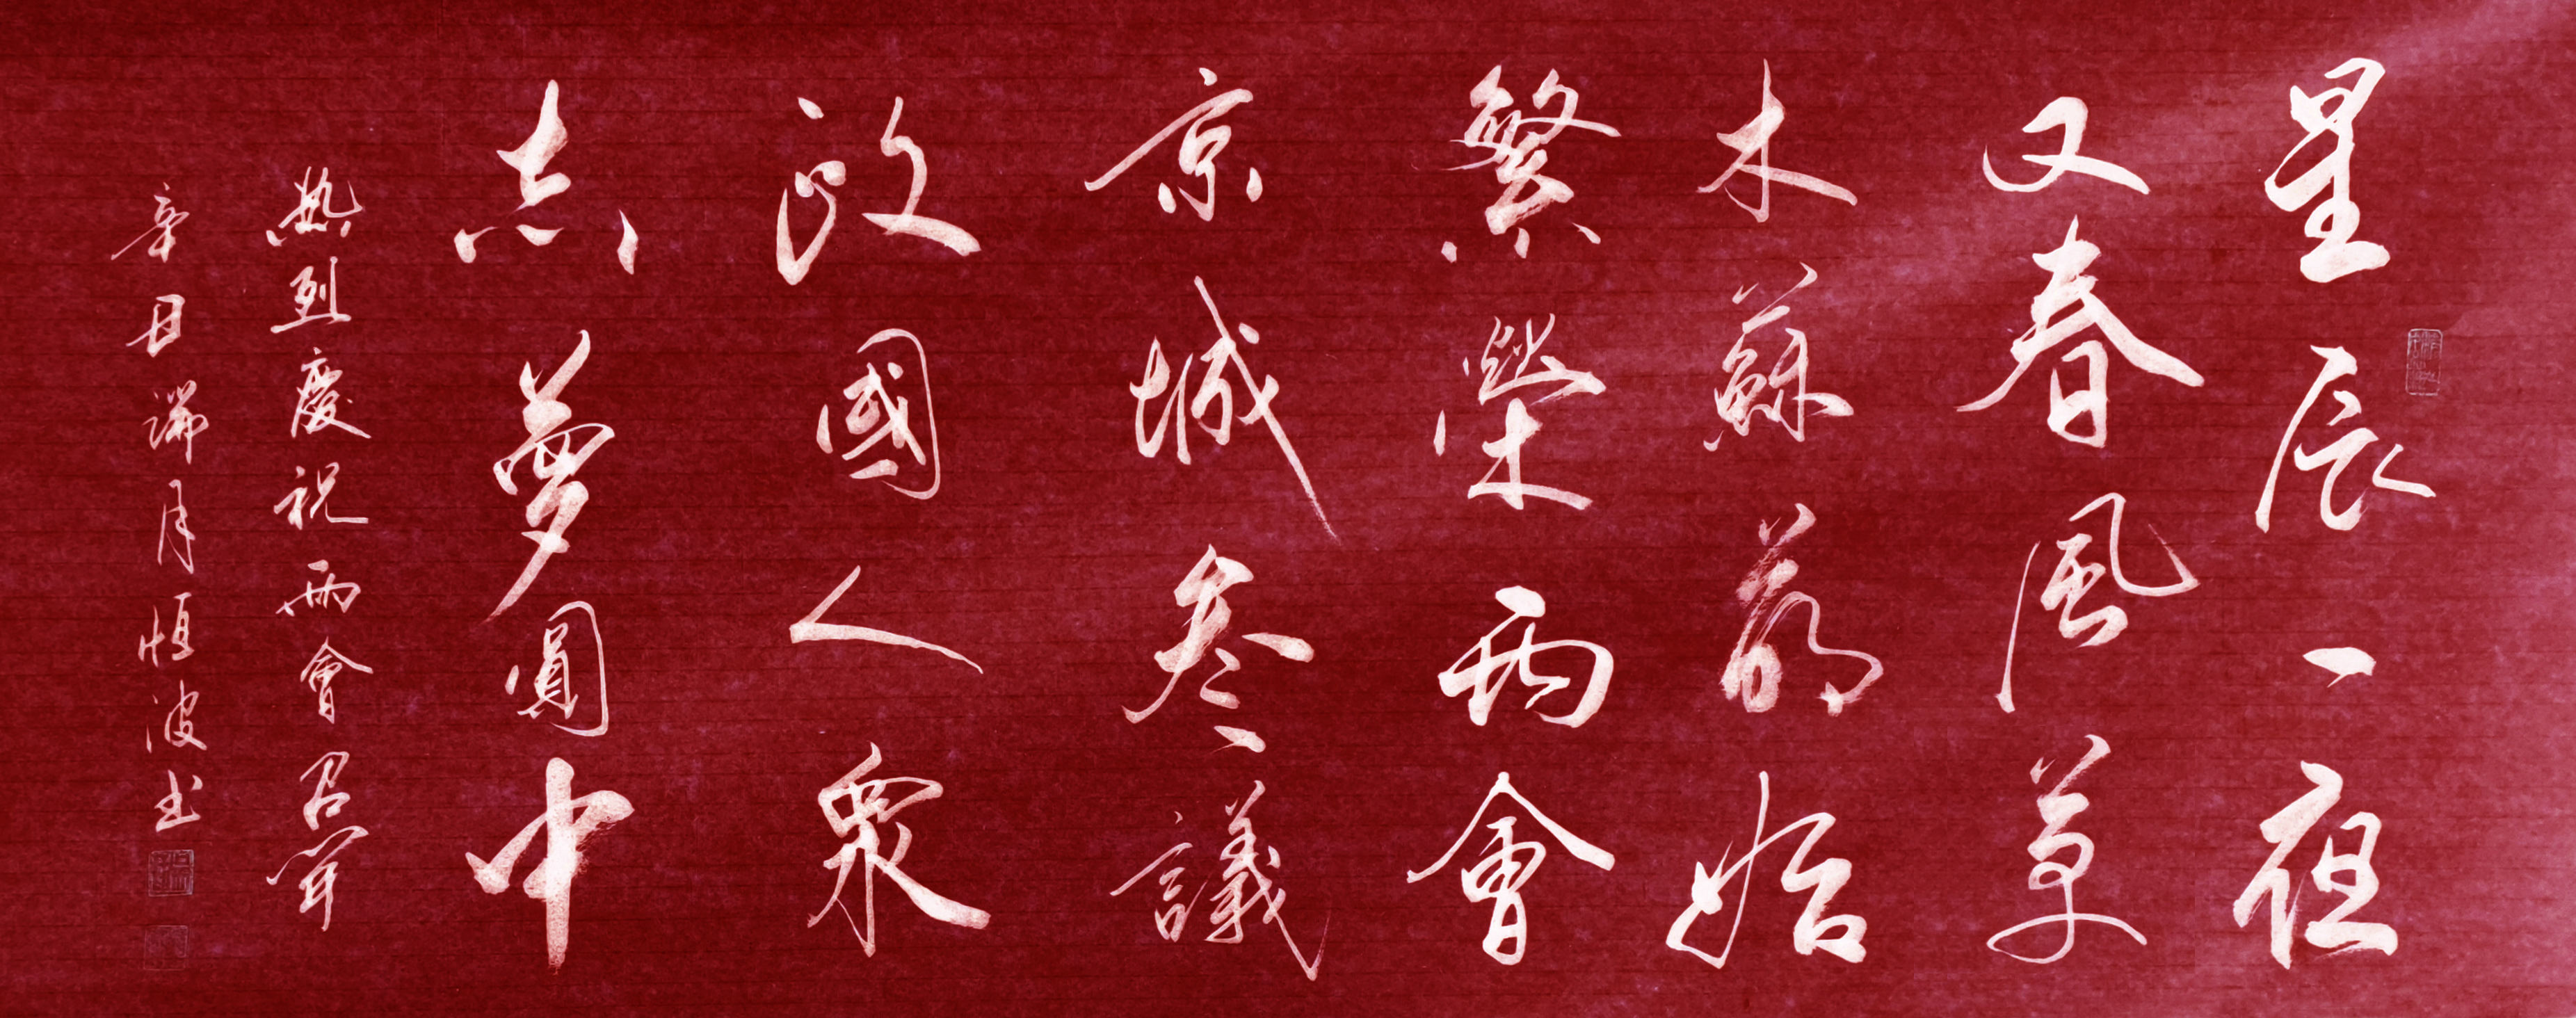 星辰一夜
又春風草
木蘇萌始
繁榮兩會
京城叁議
政國人衆
志夢圓中
热烈慶祝兩會召開
辛丑端月恒波书